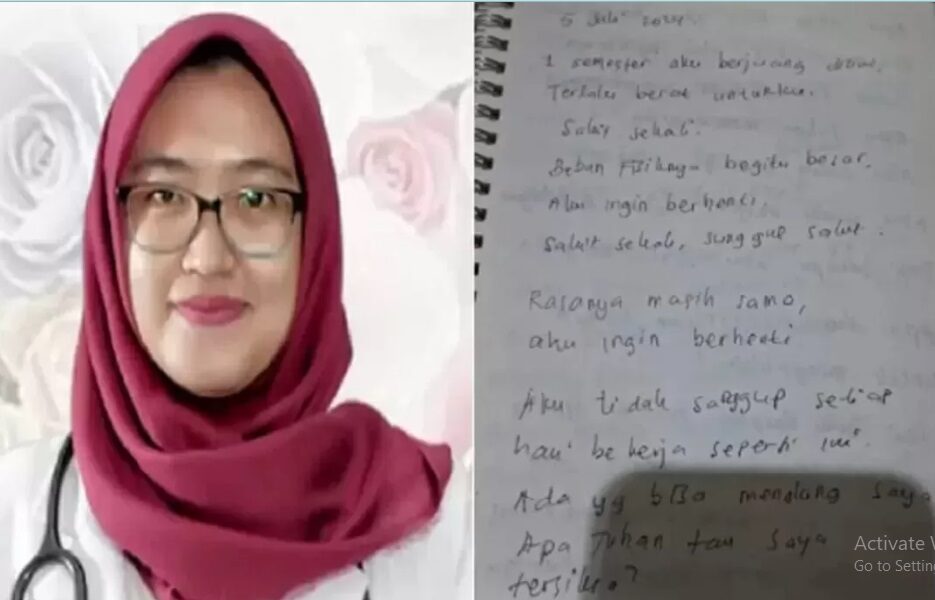 5 Juli 2024
1 semester aku berjuang disini.
Terlalu berat untukku.
Sakit sekali.
Beban Fisiknya begitu besar.
Aku ingin berhenti.
Sakit sekali, sungguh sakit.
Rasanya masih sama,
aku ingin berhenti
Aku tidak sanggup setiap
hari bekerja seperti ini.
Ada yg bisa menolong saya
Apa Tuhan tau saya
tersiksa?
Activate
Go to Settin